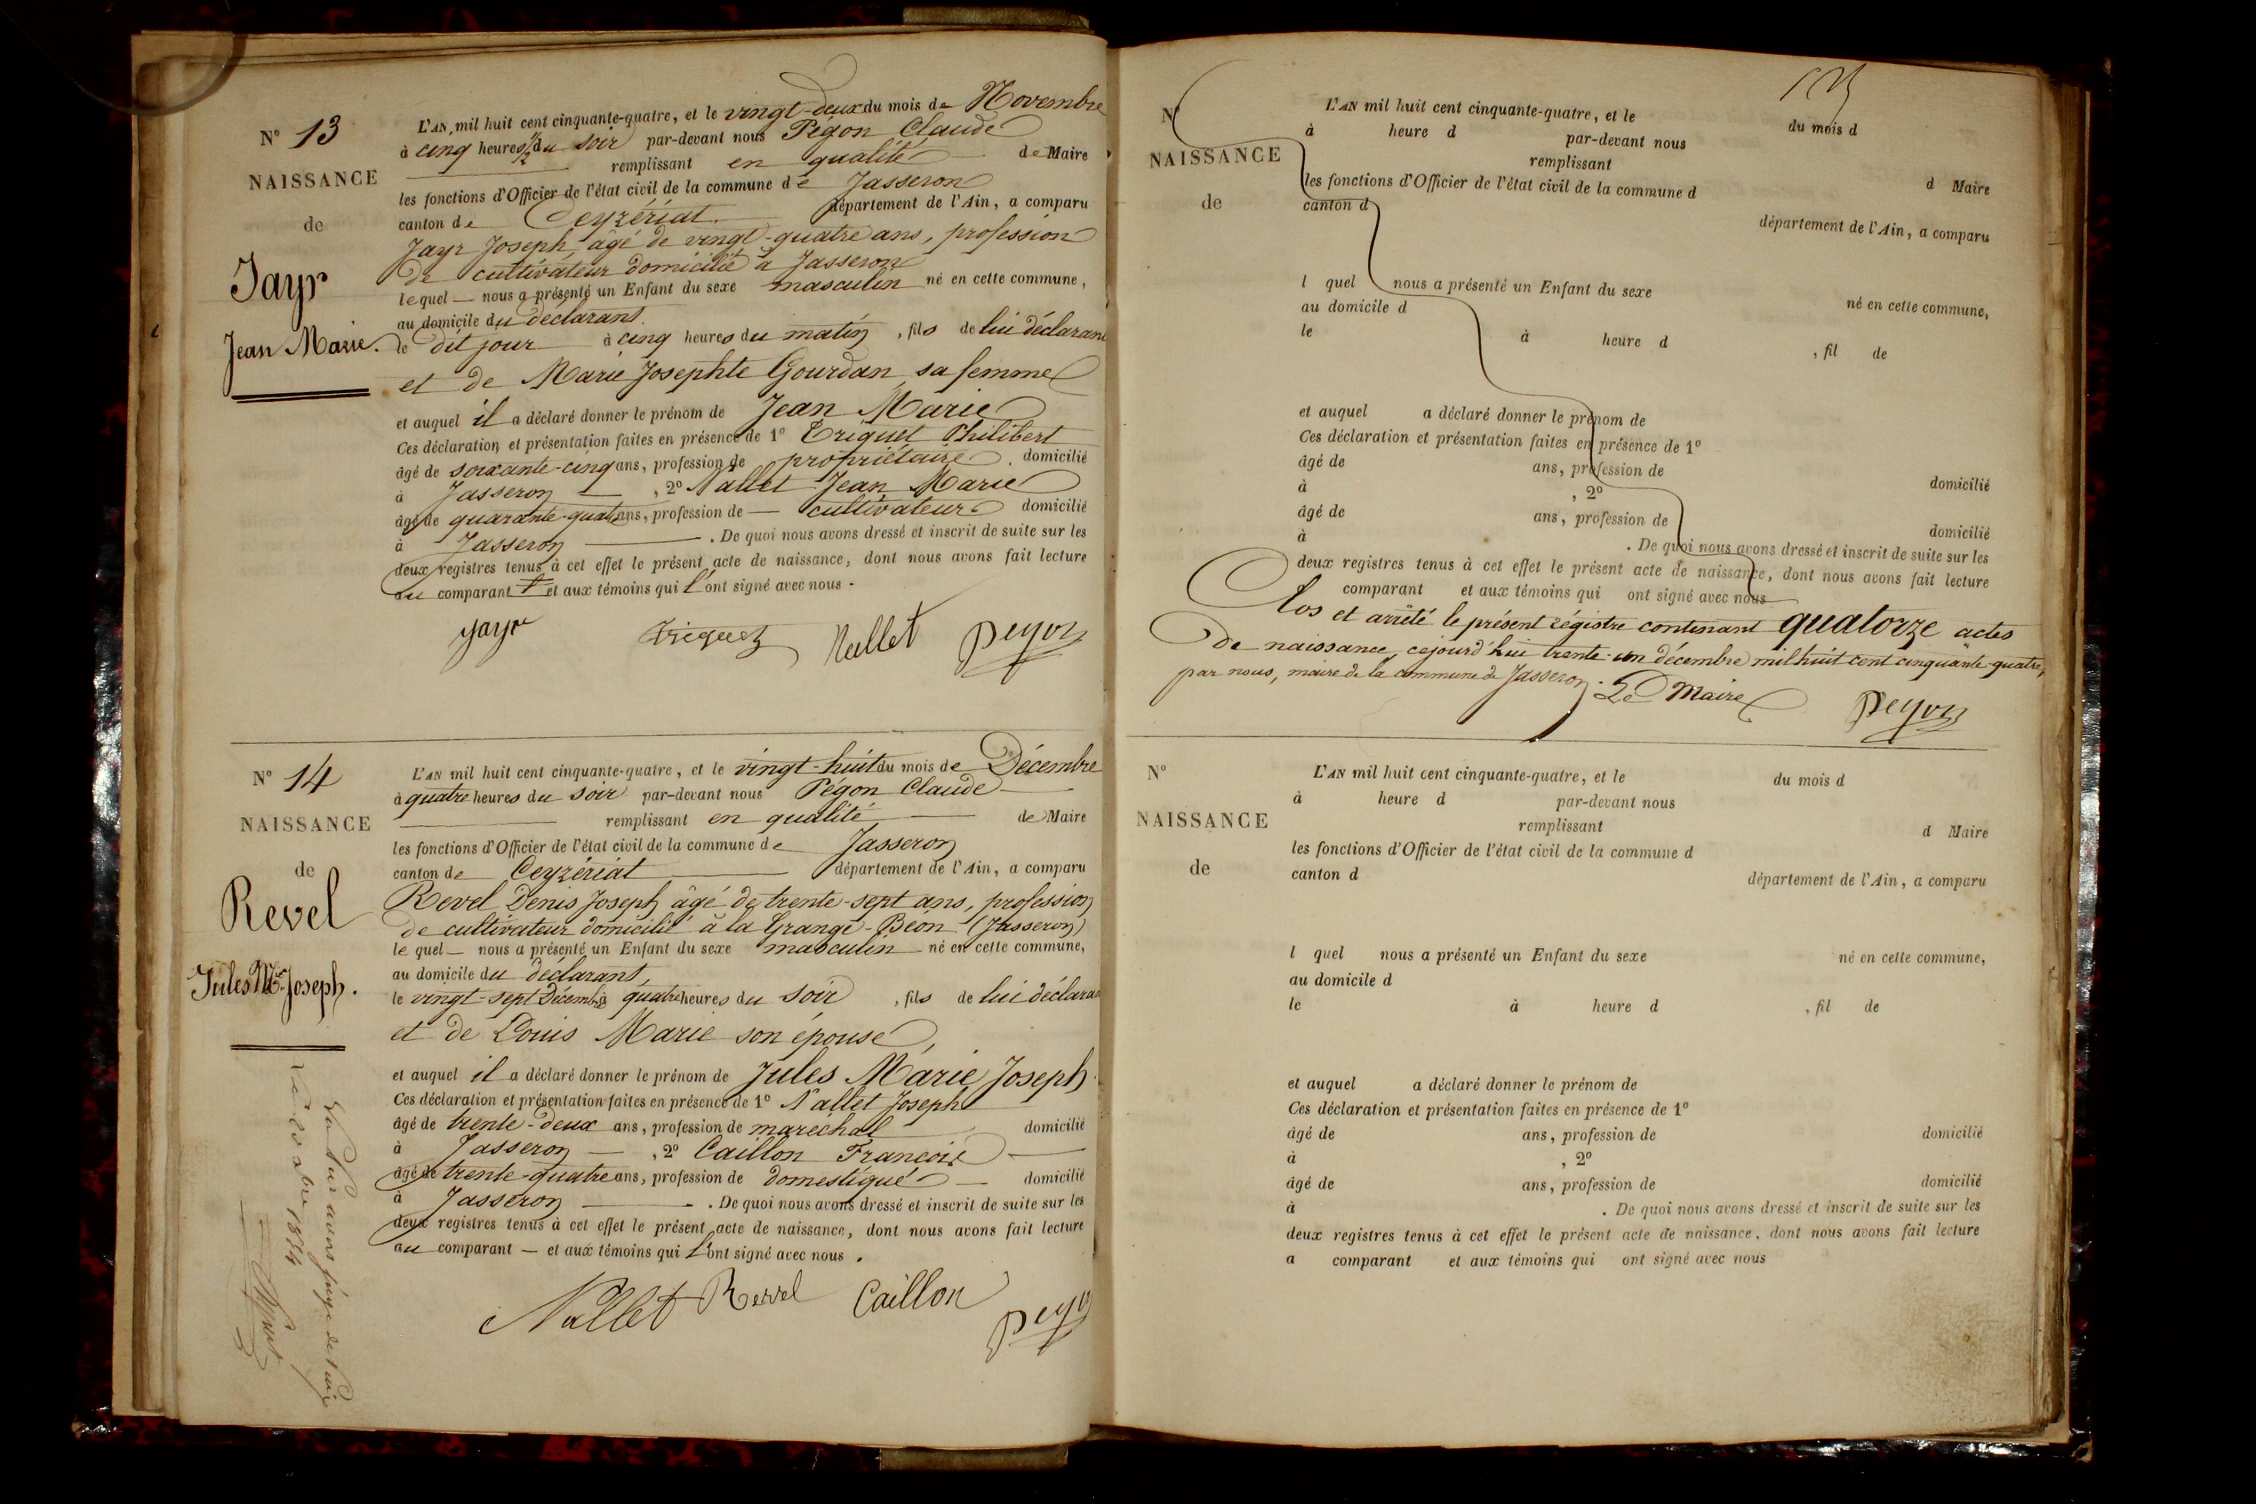 N° 13
NAISSANCE
de
Jayr
Jean Marie.
L'AN mil huit cent cinquante-quatre, et le vingt-deux du mois de Novembre
à cinq heures 1/2 du soir par-devant nous Pegon Claude
remplissant en qualité de Maire
les fonctions d'Officier de l'état civil de la commune de Jasseron
canton de Ceyzériat département de l'Ain, a comparu
Jayr Joseph, âgé de vingt-quatre ans, profession
de cultivateur domicilié à Jasseron
lequel nous a présenté un Enfant du sexe masculin né en cette commune,
au domicile du déclarant
le dit jour à cinq heures du matin, fils de lui déclarant
et de Marie Josephte Gourdan sa femme
et auquel il a déclaré donner le prénom de Jean Marie
Ces déclaration et présentation faites en présence de 1° Triquet Philibert
âgé de soixante-cinq ans, profession de propriétaire domicilié
à Jasseron, 2° Nallet Jean Marie
âgé de quarante-quatre ans, profession de cultivateur domicilié
à Jasseron. De quoi nous avons dressé et inscrit de suite sur les
deux registres tenus à cet effet le présent acte de naissance, dont nous avons fait lecture
au comparant et aux témoins qui l'ont signé avec nous.
Jayr Triquet Nallet Pegon
N° 14
NAISSANCE
de
Revel
Jules Mie Joseph.
L'AN mil huit cent cinquante-quatre, et le vingt-huit du mois de Décembre
à quatre heures du soir par-devant nous Pegon Claude
remplissant en qualité de Maire
les fonctions d'Officier de l'état civil de la commune de Jasseron
canton de Ceyzériat département de l'Ain, a comparu
Revel Denis Joseph âgé de trente-sept ans, profession
de cultivateur domicilié à la Grange-Béon (Jasseron)
le quel nous a présenté un Enfant du sexe masculin né en cette commune,
au domicile du déclarant
le vingt-sept Décembre à quatre heures du soir, fils de lui déclarant
et de Louis Marie son épouse,
et auquel il a déclaré donner le prénom de Jules Marie Joseph.
Ces déclaration et présentation faites en présence de 1° Nallet Joseph
âgé de trente-deux ans, profession de maréchal domicilié
à Jasseron, 2° Caillon Francois
âgé de trente-quatre ans, profession de domestique domicilié
à Jasseron. De quoi nous avons dressé et inscrit de suite sur les
deux registres tenus à cet effet le présent acte de naissance, dont nous avons fait lecture
au comparant et aux témoins qui l'ont signé avec nous.
Nallet Revel Caillon Pegon
Vu par nous juge de Paix
1854
N°
NAISSANCE
de
L'AN mil huit cent cinquante-quatre, et le du mois d
à heure d par-devant nous
remplissant d Maire
les fonctions d'Officier de l'état civil de la commune d
canton d département de l'Ain, a comparu
l quel nous a présenté un Enfant du sexe né en cette commune,
au domicile d
le à heure d , fil de
et auquel a déclaré donner le prénom de
Ces déclaration et présentation faites en présence de 1°
âgé de ans, profession de domicilié
à , 2°
âgé de ans, profession de domicilié
à . De quoi nous avons dressé et inscrit de suite sur les
deux registres tenus à cet effet le présent acte de naissance, dont nous avons fait lecture
comparant et aux témoins qui ont signé avec nous
Clos et arrêté le présent régistre contenant quatorze actes
de naissance, cejourd'hui trente-un décembre mil huit cent cinquante-quatre,
par nous, maire de la commune de Jasseron. Le Maire
Pegon
N°
NAISSANCE
de
L'AN mil huit cent cinquante-quatre, et le du mois d
à heure d par-devant nous
remplissant d Maire
les fonctions d'Officier de l'état civil de la commune d
canton d département de l'Ain, a comparu
l quel nous a présenté un Enfant du sexe né en cette commune,
au domicile d
le à heure d , fil de
et auquel a déclaré donner le prénom de
Ces déclaration et présentation faites en présence de 1°
âgé de ans, profession de domicilié
à , 2°
âgé de ans, profession de domicilié
à . De quoi nous avons dressé et inscrit de suite sur les
deux registres tenus à cet effet le présent acte de naissance, dont nous avons fait lecture
a comparant et aux témoins qui ont signé avec nous